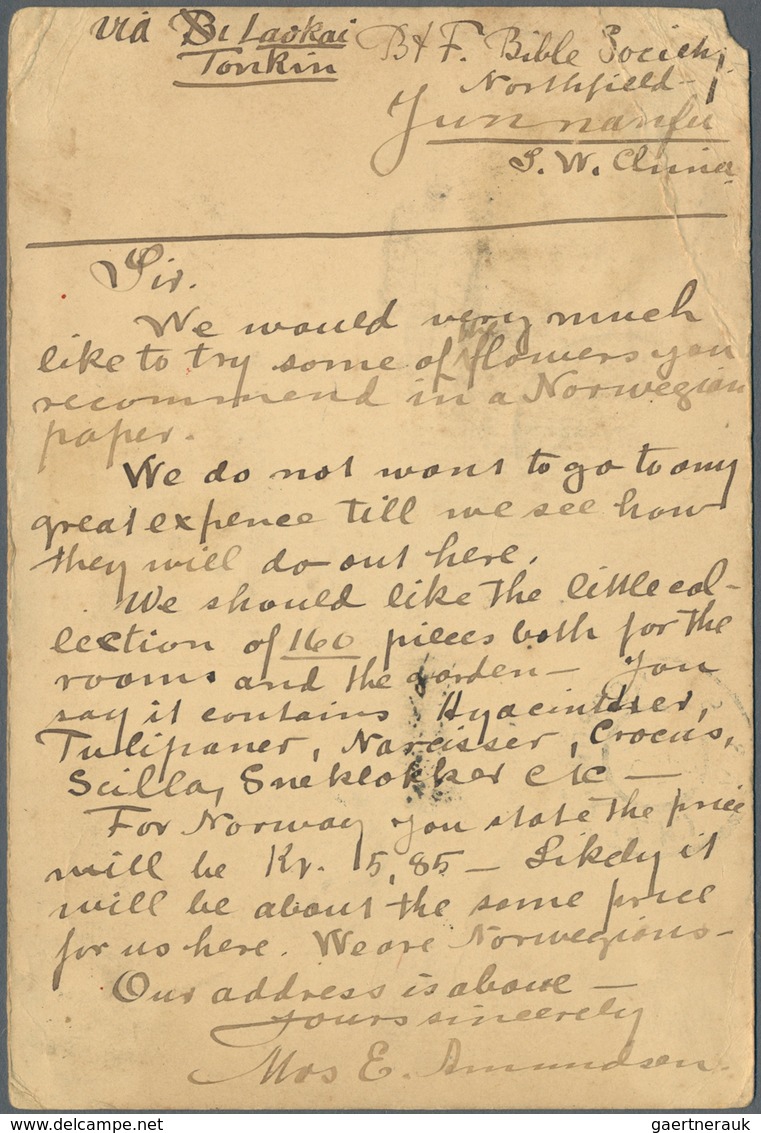 via Laokai
Tonkin
B & F. Bible Society
Northfield
Yunnanfu
S. W. China
Sir.
We would very much
like to try some of flowers you
recommend in a Norwegian
paper.
We do not want to go to any
great expence till we see how
they will do out here.
We should like the little col-
lection of 160 pieces both for the
rooms and the garden - You
say it contains Hyacinther,
Tulipaner, Narcisser, Crocus,
Scilla, Sneklokker etc -
For Norway you state the price
will be Kr. 5,85 - Likely it
will be about the same price
for us here. We are Norwegians -
Our address is above -
Yours sincerely
Mrs E. Amundsen.
gaertnerauk